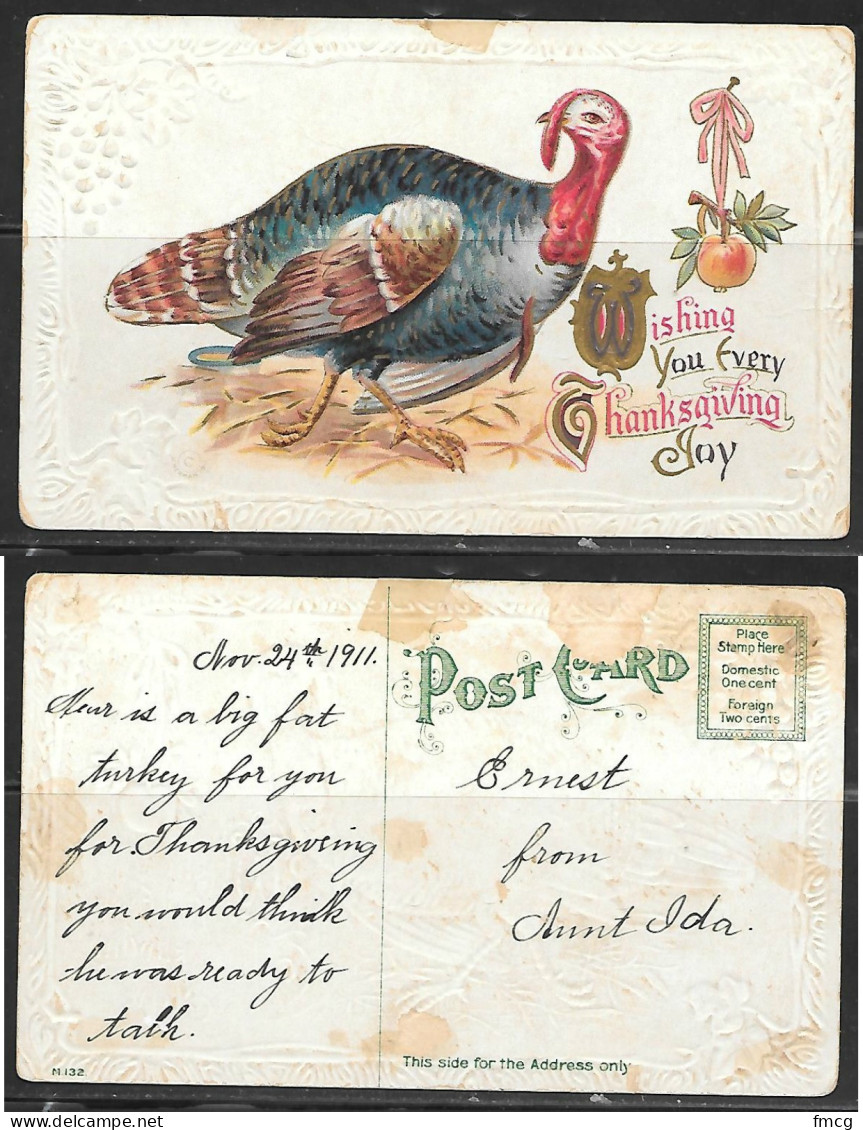 Wishing
You Every
Thanksgiving
Joy
Nov. 24th 1911.
Hear is a big fat
turkey for you
for Thanksgiveing
you would think
he was ready to
talk.
POST CARD
Place
Stamp Here
Domestic
One cent
Foreign
Two cents
Ernest
from
Aunt Ida.
N.132
This side for the Address only
fmcg